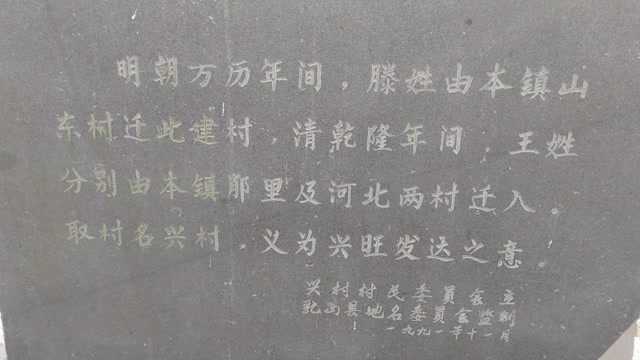 明朝万历年间，滕姓由本镇山
东村迁此建村，清乾隆年间，王姓
分别由本镇那里及河北两村迁入。
取村名兴村，义为兴旺发达之意。
兴村村民委員会立
乳山县地名委員会监制
一九九一年十一月